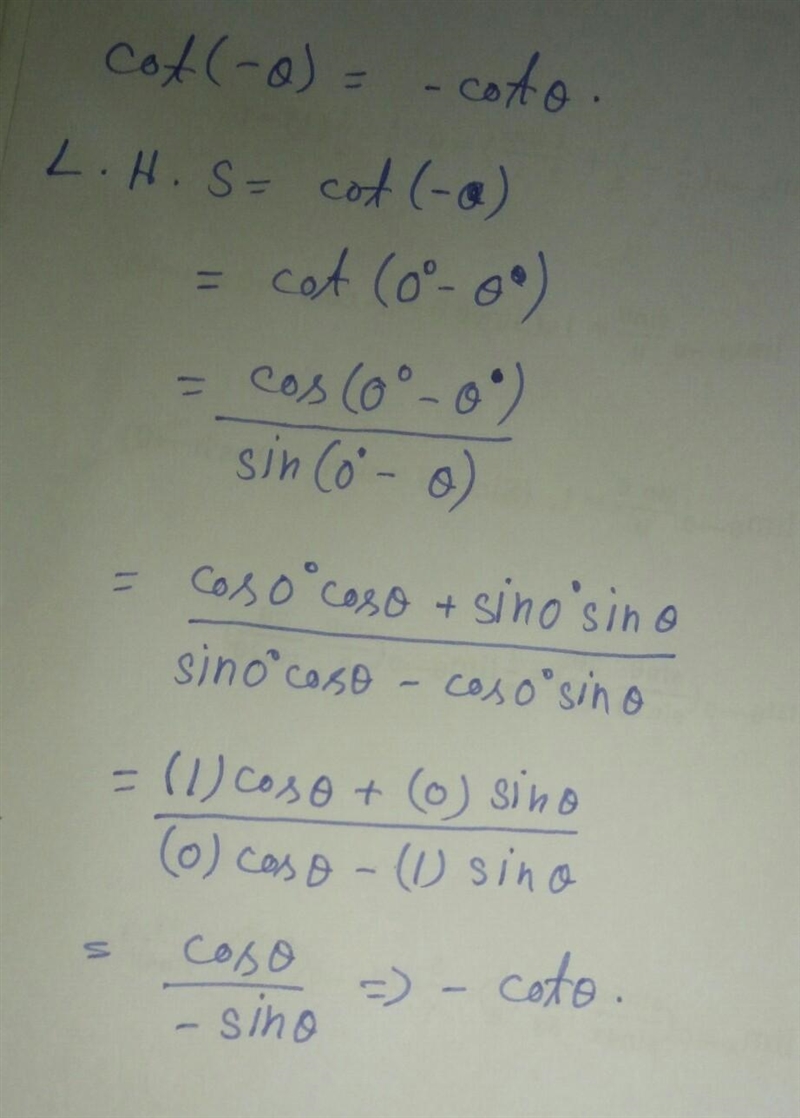 cot(-θ) = -cotθ.
L.H.S = cot(-θ)
= cot(0°-θ°)
= cos(0°-θ°)
sin(0°- θ)
= cos0°cosθ + sin0°sinθ
sin0°cosθ - cos0°sinθ
= (1)cosθ + (0) sinθ
(0) cosθ - (1) sinθ
= cosθ
- sinθ => - cotθ.